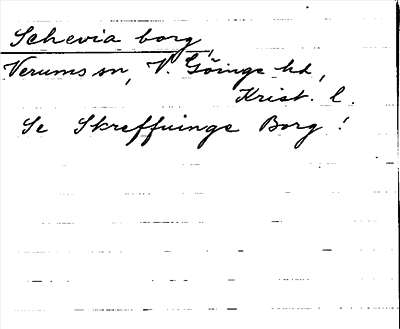 Schevia borg,
Verums sn, V. Göinge hd,
Krist. l.
Se Skreffuinge Borg!